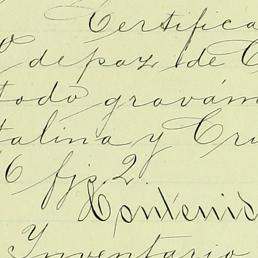 Certifica
de paz de C
todo gravám
talina y Cru
6 fjs. 2.
Contenid
Inventario